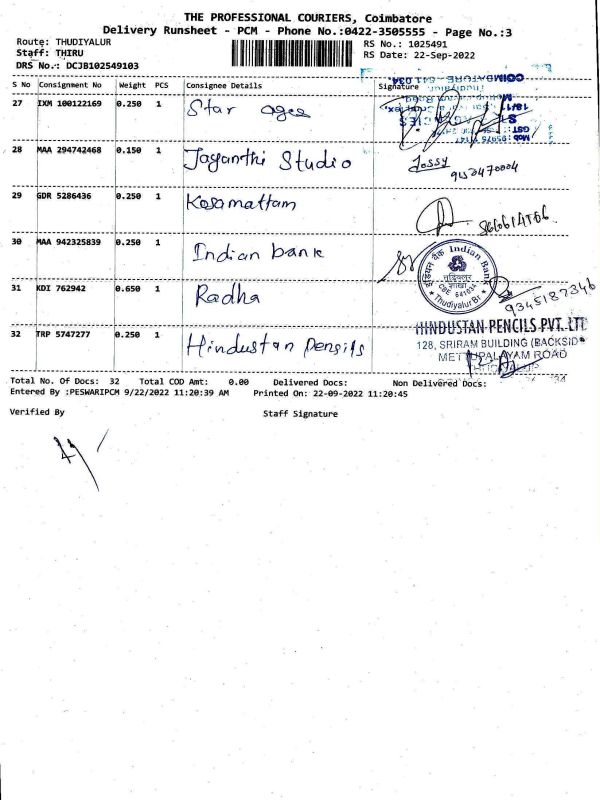 THE PROFESSIONAL COURIERS, Coimbatore
Delivery Runsheet - PCM - Phone No.:0422-3505555 - Page No.:3
Route: THUDIYALUR RS No.: 1025491
Staff: THIRU RS Date: 22-Sep-2022
DRS No.: DCJB102549103
S No Consignment No Weight PCS Consignee Details Signature
27 IXM 100122169 0.250 1 Star ages
28 MAA 294742468 0.150 1 Jayanthi Studio Jossy
29 GDR 5286436 0.250 1 Kosamattam
30 MAA 942325839 0.250 1 Indian bank
Indian Bank
Thudiyalur Br
31 KDI 762942 0.650 1 Radha 9345187346
32 TRP 5747277 0.250 1 Hindustan Pensils
HINDUSTAN PENCILS PVT. LTD
128, SRIRAM BUILDING (BACKSID
METTUPALAYAM ROAD
Total No. Of Docs: 32 Total COD Amt: 0.00 Delivered Docs: Non Delivered Docs:
Entered By :PESWARIPCM 9/22/2022 11:20:39 AM Printed On: 22-09-2022 11:20:45
Verified By Staff Signature